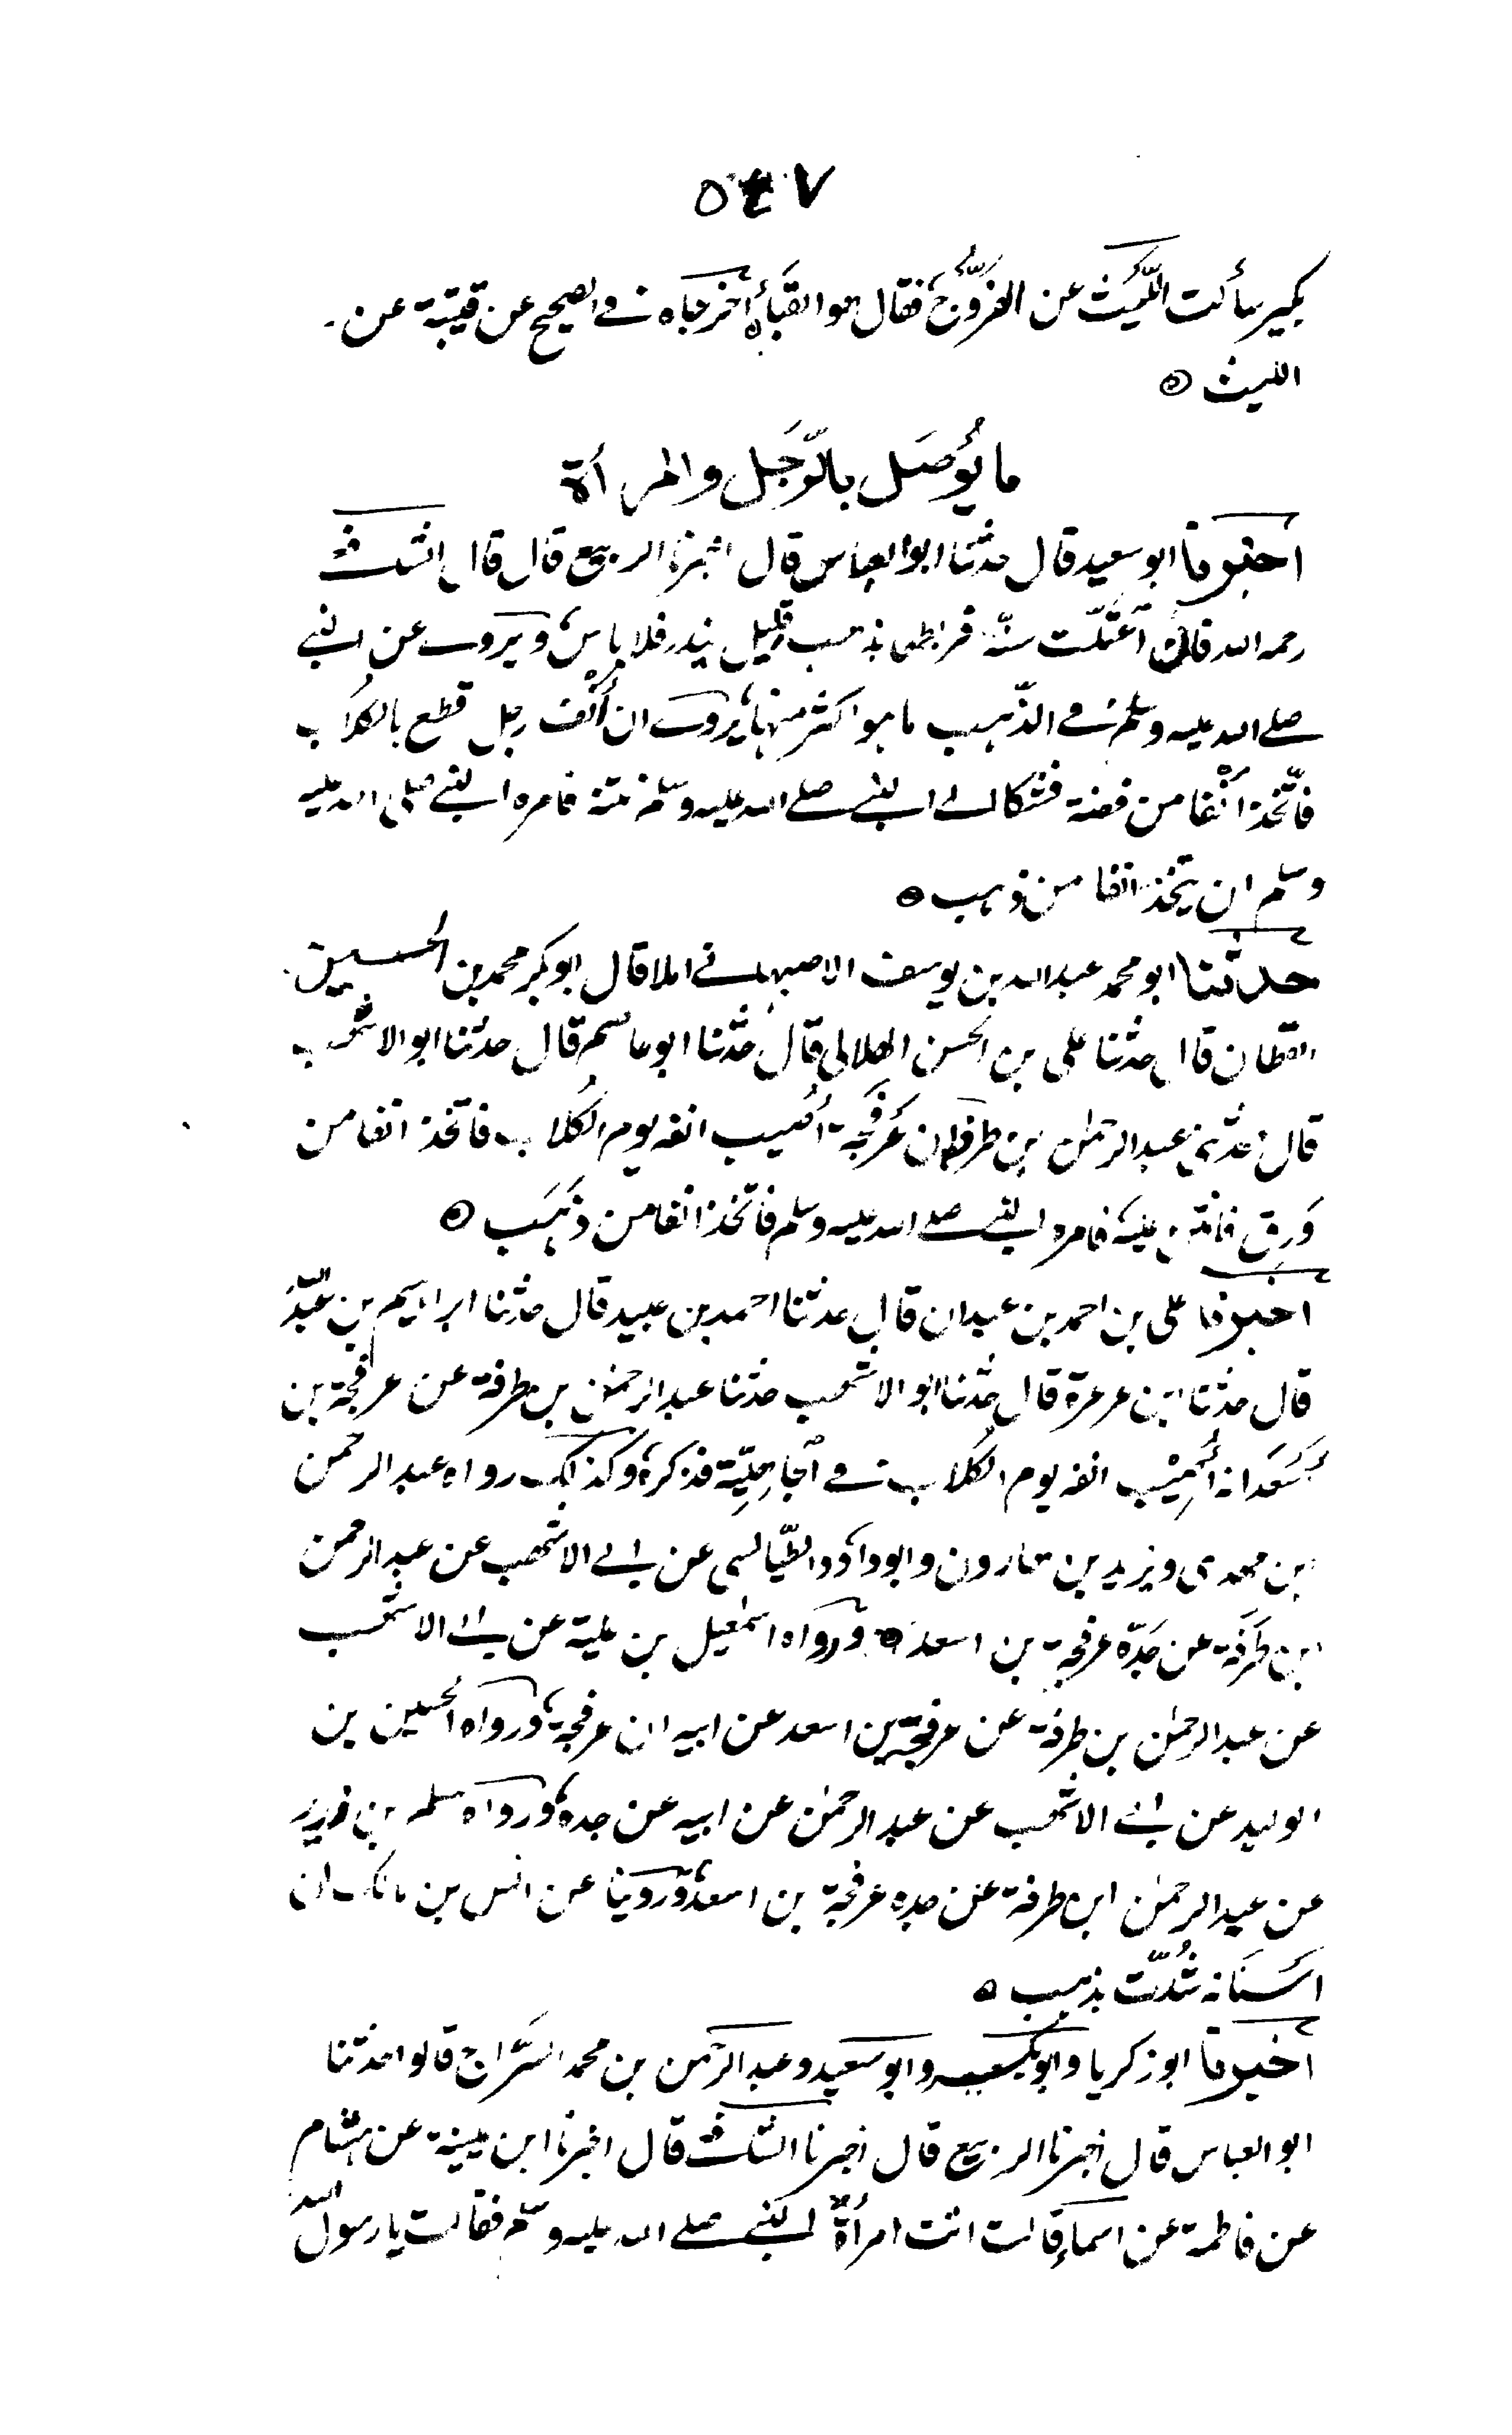 ٥٤٧
بكير سألت الليث عن الفرّوج فقال هو القباء أخرجاه في الصحيح عن قتيبة عن
الليث ۞
ما يُوصَل بالرَّجل والمرأة
اخبرنا ابو سعيد قال حدثنا ابو العباس قال اخبرنا الربيع قال قال الشافعي
رحمه الله فان اعتلّت سنّه فربطها بذهب قليل يندر فلا بأس ويروى عن النبي
صلى الله عليه وسلم في الذّهب ما هو اكثر منها يروى ان أنف رجل قطع بالكلاب
فاتّخذ أنفا من فضة فشكا الى النبي صلى الله عليه وسلم نتنه فامره النبي صلى الله عليه
وسلم ان يتخذ انفا من ذهب ۞
حدثنا ابو محمد عبد الله بن يوسف الاصبهاني املا قال ابو بكر محمد بن الحسين
القطان قال حدثنا علي بن الحسن الهلالي قال حدثنا ابو عاصم قال حدثنا ابو الاشهب
قال حدثني عبد الرحمٰن بن طرفة ان عَرفَجة أُصيب انفه يوم الكُلاب فاتخذ انفا من
وَرِق فانتن عليه فامره النبي صلى الله عليه وسلم فاتخذ انفا من ذَهَب ۞
اخبرنا علي بن احمد بن عبدان قال حدثنا احمد بن عبيد قال حدثنا ابراهيم بن عبد الله
قال حدثنا ابن عرعرة قال حدثنا ابو الاشهب حدثنا عبد الرحمٰن بن طرفة عن عرفجة بن
أسعَد انه أُصِيْب انفه يوم الكُلاب في الجاهِلِيّة فذكره وكذلك رواه عبد الرحمن
ابن مهدي ويزيد بن هارون وابو داؤد الطّيالسي عن ابي الاشهب عن عبد الرحمن
ابن طَرَفَة عن جَدّه عرفجة بن اسعد ۞ ورواه اسمٰعيل بن علية عن ابي الاشهب
عن عبد الرحمٰن بن طرفة عن عرفجة بن اسعد عن ابيه ان عرفجة ورواه الحسين بن
الوليد عن ابي الاشهب عن عبد الرحمٰن عن ابيه عن جده ورواه سلم بن زرير
عن عبد الرحمٰن ابن طرفة عن جده عرفجة بن اسعد وروينا عن انس بن مالك ان
اسنانه شُدّت بذهب ۞
اخبرنا ابو زكريا وابو بكر وابو سعيد وعبد الرحمن بن محمد السَّراج قالوا حدثنا
ابو العباس قال اخبرنا الربيع قال اخبرنا الشافعي قال اخبرنا ابن عيينة عن هشام
عن فاطمة عن اسماء قالت اتت امرأةٌ النبي صلى الله عليه وسلم فقالت يا رسول الله